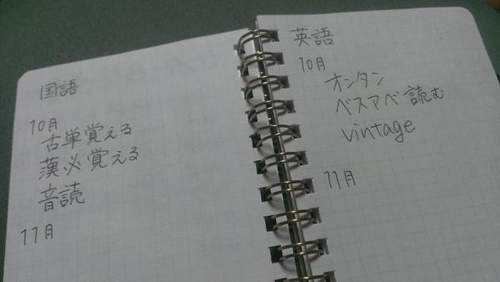 国語
10月
古単覚える
漢必覚える
音読
11月
英語
10月
オンタン
ベスアベ読む
vintage
11月